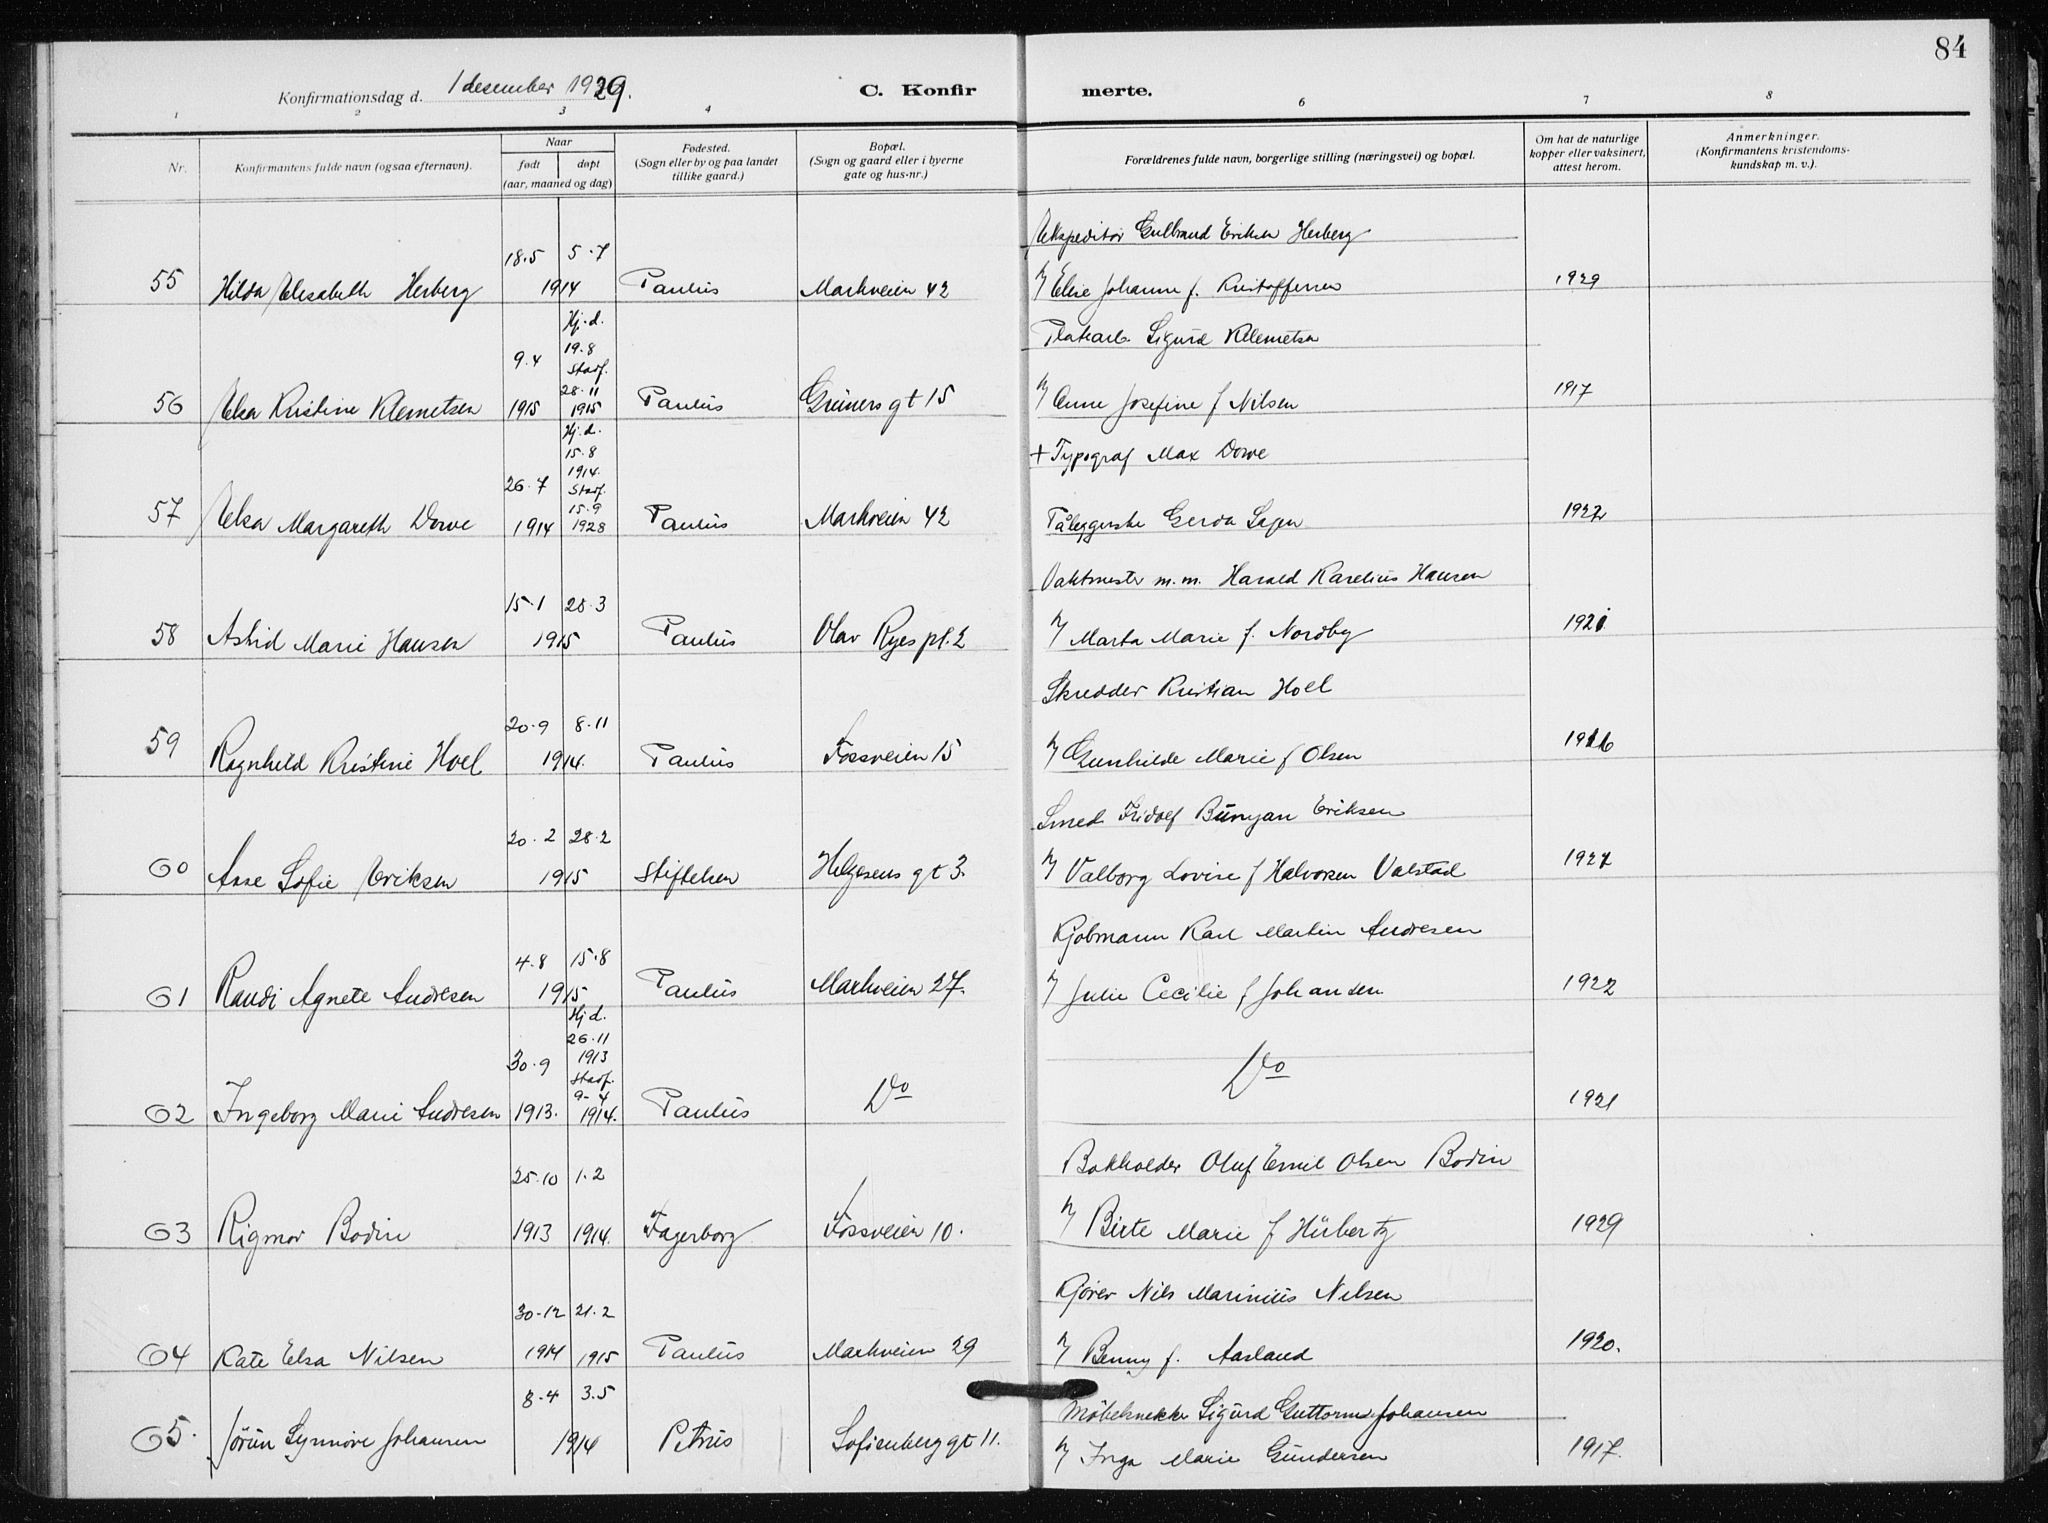 84
Konfirmationsdag d. 1 desember 1929. C. Konfirmerte.
1 2 3 4 6 7 8
Nr. Konfirmantens fulde navn (ogsaa efternavn). Naar født døpt (aar, maaned og dag) Fødested. (Sogn eller by og paa landet tillike gaard.) Bopæl. (Sogn og gaard eller i byerne gate og hus-nr.) Forældrenes fulde navn, borgerlige stilling (næringsvei) og bopæl. Om hat de naturlige kopper eller vaksinert, attest herom. Anmerkninger. (Konfirmantens kristendomskundskap m. v.).
18.5 5.7 Ekspeditør Gulbrand Eriksen Herberg
55 Hilda Elisabeth Herberg 1914 Paulus Markveien 42 Elise Johanne f. Kristoffersen 1929
9.4 Hj.d. 19.8 Stadf. 28.11 Sigurd Klemetsen
56 Elsa Kristine Klemetsen 1915 1915 Paulus Grüners gt 15 Anne Josefine f Nilsen 1917
26.7 Hj.d. 15.8 1914. Stadf. 15.9 + Typograf Max Dowe
57 Elsa Margareth Dowe 1914 1928 Paulus Markveien 42 Gerda 1922
15.1 28.3 Vaktmester m.m. Harald Karelius Hansen
58 Astrid Marie Hansen 1915 Paulus Olav Ryes pl. 2 Marta Marie f. Nordby 1921
20.9 8.11 Skredder Kristian Hoel
59 Ragnhild Kristine Hoel 1914. Paulus Fossveien 15 Gunhilde Marie f Olsen 1916
20.2 28.2 Smed Fridolf Bunyan Eriksen
60 Aase Sofie Eriksen 1915 Stiftelsen Helgesens gt 3. Valborg Lovise f Halvorsen Valstad 1927
4.8 15.8 Kjøbmann Karl Martin Andresen
61 Randi Agnete Andresen 1915 Paulus Markveien 27. Julie Cecilie f Johansen 1922
30.9 Hj d. 26.11 1913 Stadf. 9-4
62 Ingeborg Marie Andresen 1913. 1914. Paulus Do Do 1921
25.10 1.2 Bokholder Oluf Emil Olsen Bodin
63 Rigmor Bodin 1913 1914. Fagerborg Fossveien 10. Birte Marie f Hübertz 1929
30.12 21.2 Kjører Nils Marinius Nilsen
64 Kate Elsa Nilsen 1914 1915 Paulus Markveien 29 Benny f. Aasland 1920.
8.4 3.5 Møbelsnekker Sigurd Guttorm Johansen
65. Jorun Synnøve Johansen 1914 Petrus Sofienberg gt 11. Inga Marie Gundersen 1917.